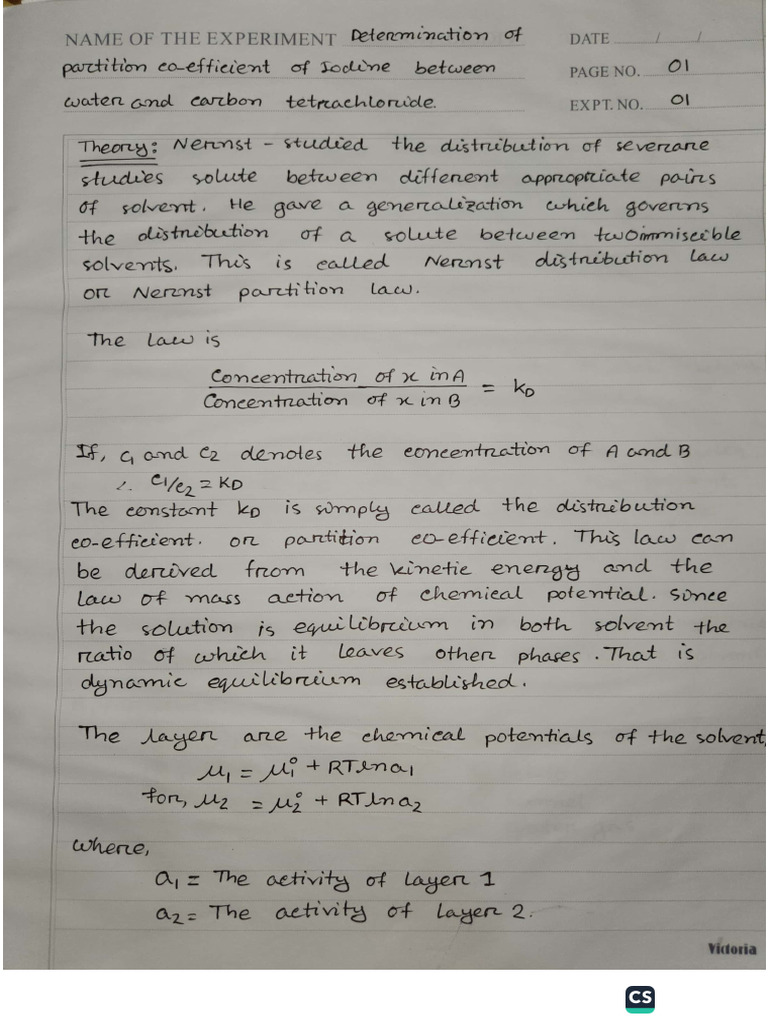 NAME OF THE EXPERIMENT Determination of
DATE / /
partition co-efficient of Iodine between
PAGE NO. 01
water and carbon tetrachloride.
EXPT. NO. 01
Theory: Nernst - studied the distribution of severane
studies solute between different appropriate pairs
of solvent. He gave a generalization which governs
the distribution of a solute between two immiscible
solvents. This is called Nernst distribution law
or Nernst partition law.
The law is
Concentration of x in A
Concentration of x in B
= KD
If, C1 and C2 denotes the concentration of A and B
∴ C1/C2 = KD
The constant KD is simply called the distribution
co-efficient. or partition co-efficient. This law can
be derived from the kinetic energy and the
law of mass action of chemical potential. Since
the solution is equilibrium in both solvent the
ratio of which it leaves other phases. That is
dynamic equilibrium established.
The layer are the chemical potentials of the solvent,
μ1 = μ1° + RT ln a1
for, μ2 = μ2° + RT ln a2
where,
a1 = The activity of layer 1
a2 = The activity of layer 2.
Victoria
CS